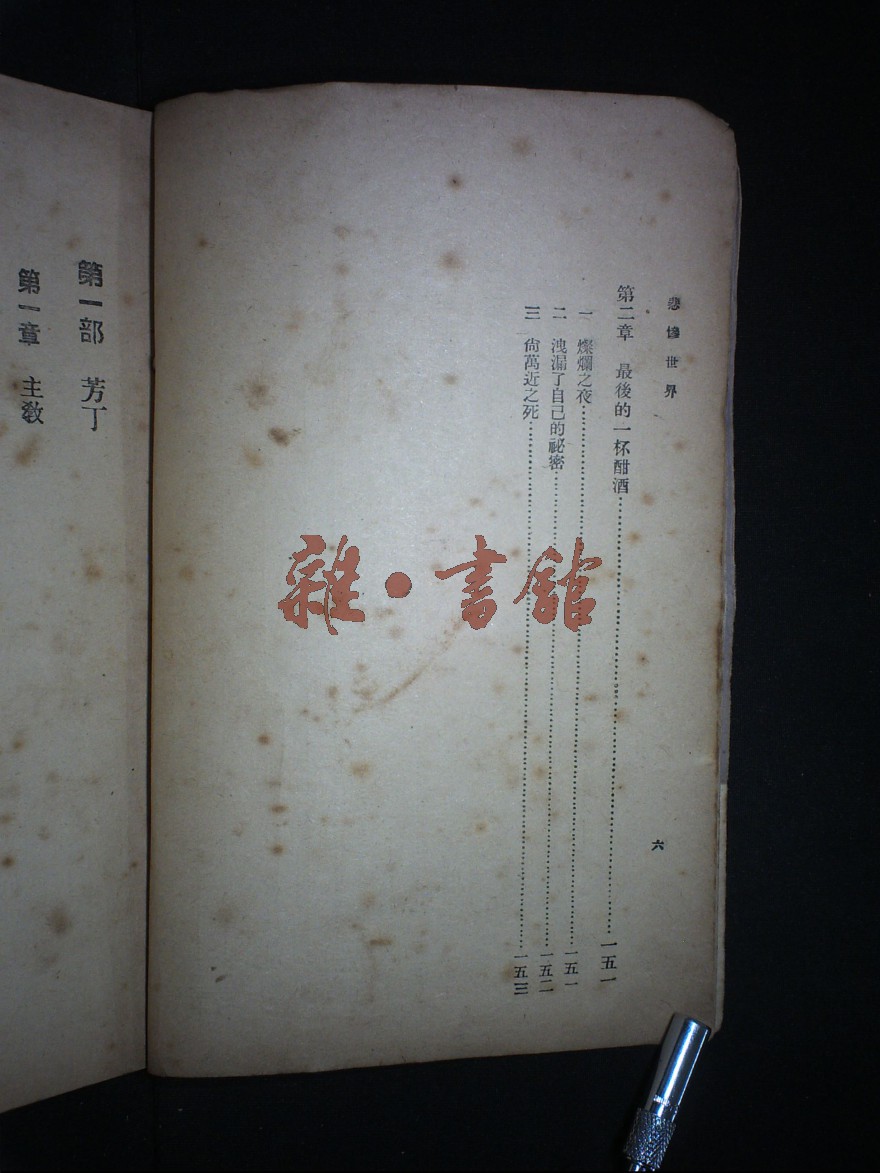 悲慘世界
六
第二章 最後的一杯酣酒……一五一
一 燦爛之夜……一五一
二 洩漏了自己的祕密……一五二
三 尙萬近之死……一五三
第一部 芳丁
第一章 主敎
雜·書館